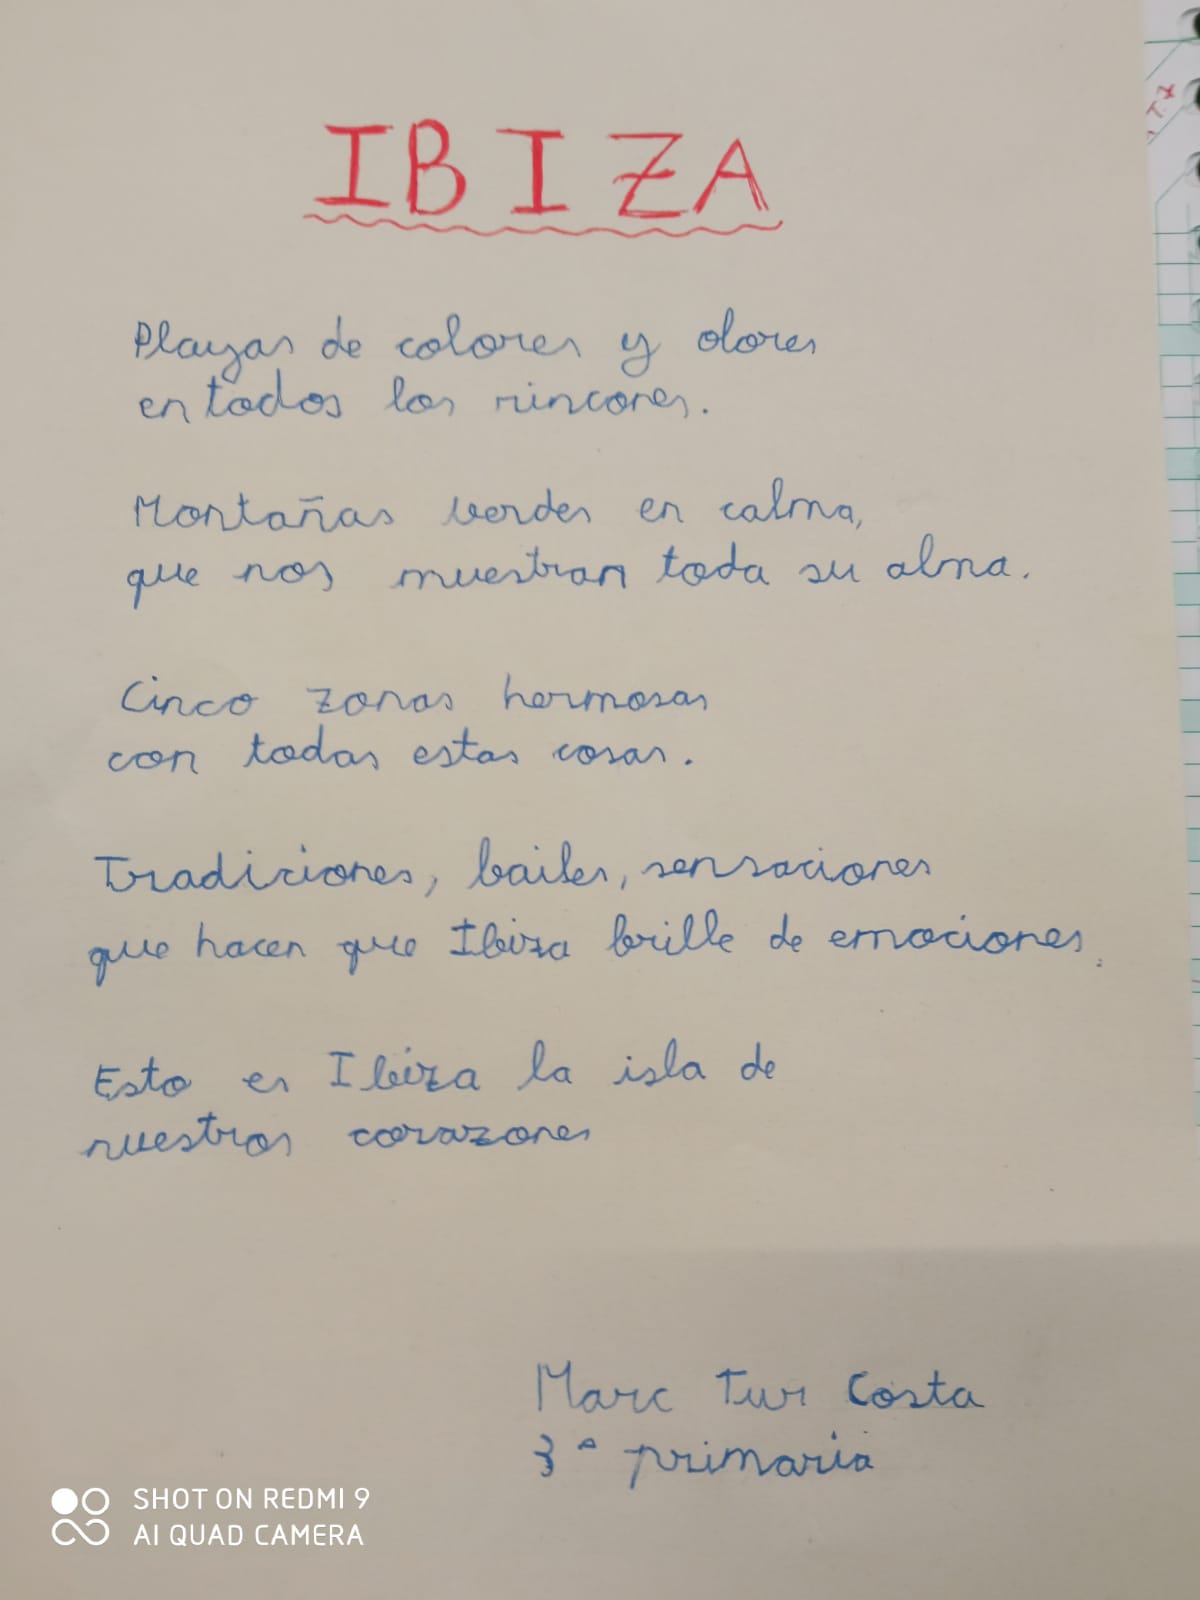 IBIZA
Playas de colores y olores
en todos los rincones.
Montañas verdes en calma,
que nos muestran toda su alma.
Cinco zonas hermosas
con todas estas cosas.
Tradiciones, bailes, sensaciones
que hacen que Ibiza brille de emociones.
Esto es Ibiza la isla de
nuestros corazones
Marc Tur Costa
3ª primaria
SHOT ON REDMI 9
AI QUAD CAMERA